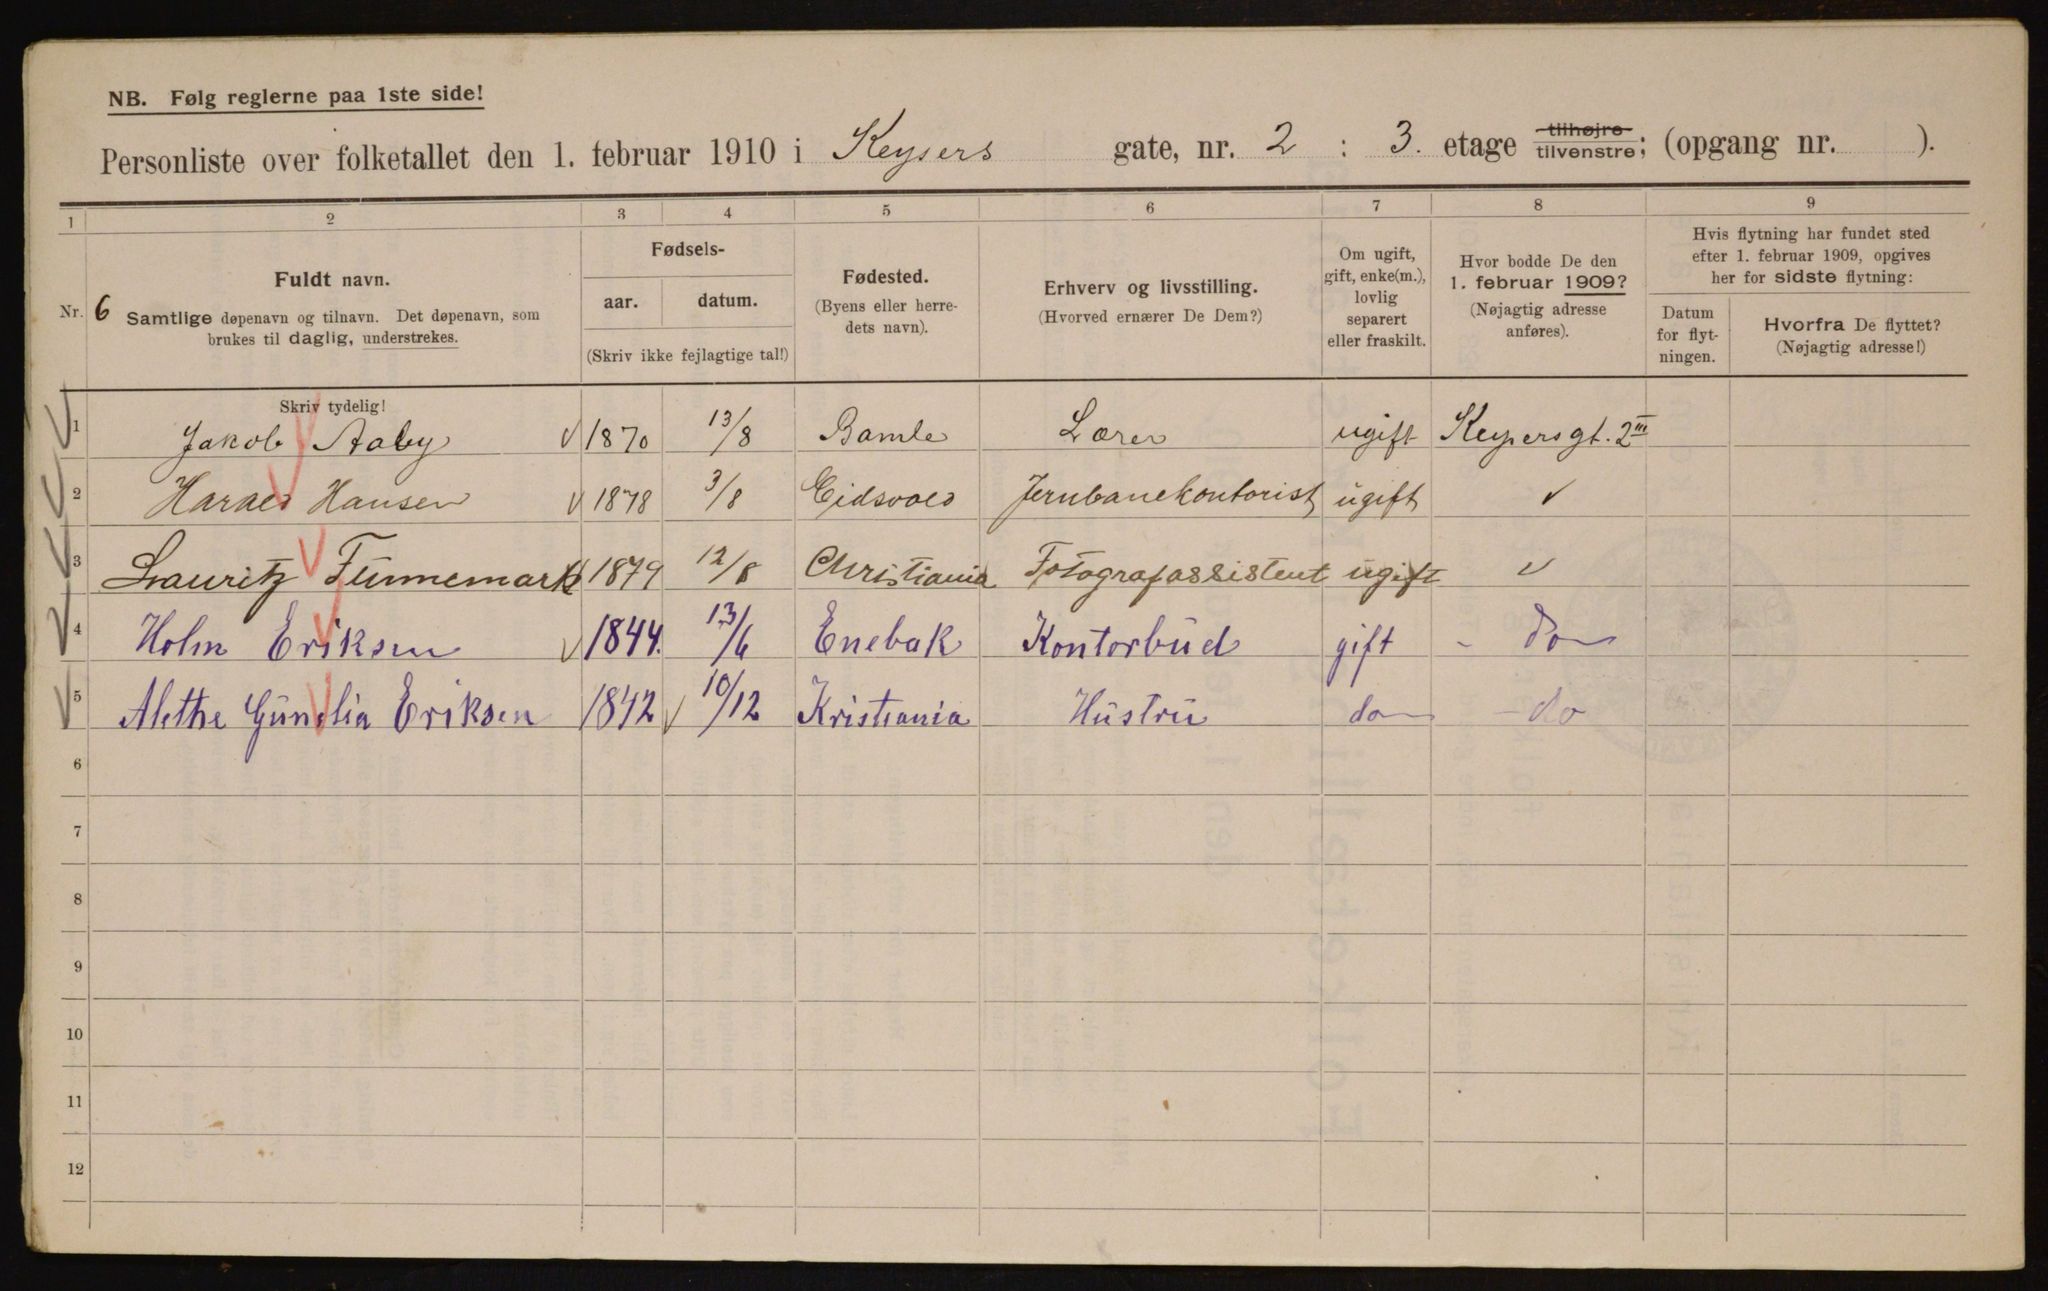 NB. Følg reglerne paa 1ste side!
Personliste over folketallet den 1. februar 1910 i Keysers gate, nr. 2 : 3. etage tilhøjre tilvenstre; (opgang nr. ).
1 2 3 4 5 6 7 8 9
Nr. 6
Fuldt navn.
Samtlige døpenavn og tilnavn. Det døpenavn, som
brukes til daglig, understrekes.
Skriv tydelig!
Fødsels-
aar. datum.
(Skriv ikke fejlagtige tal!)
Fødested.
(Byens eller herre-
dets navn).
Erhverv og livsstilling.
(Hvorved ernærer De Dem?)
Om ugift,
gift, enke(m.),
lovlig
separert
eller fraskilt.
Hvor bodde De den
1. februar 1909?
(Nøjagtig adresse
anføres).
Hvis flytning har fundet sted
efter 1. februar 1909, opgives
her for sidste flytning:
Datum
for flyt-
ningen.
Hvorfra De flyttet?
(Nøjagtig adresse!)
1 Jakob Aaby 1870 13/8 Bamle Lærer ugift Keysersgt. 2 III
2 Harald Hansen 1878 3/8 Eidsvold Jernbanekontorist ugift
3 Lauritz Funnemark 1879 12/8 Christiania Fotografassistent ugift
4 Holm Eriksen 1844. 13/6 Enebak Kontorbud gift - do
5 Alethe Gunelia Eriksen 1842 10/12 Kristiania Hustru do - do
6
7
8
9
10
11
12